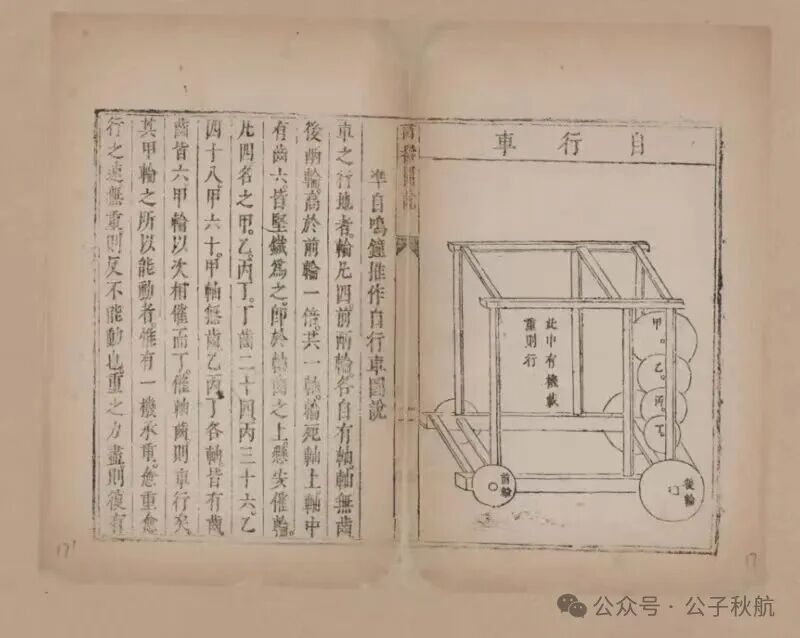 自行車
甲
乙
丙
丁
此中有機載
重則行
後輪
前輪
準自鳴鐘推作自行車圖說
車之行地者輪凡四前兩輪各自有軸軸無齒
後兩輪高於前輪一倍共一軸輪死軸上軸中
有齒六皆堅鐵爲之即於軸齒之上懸安催輪
凡四名之甲乙丙丁丁齒二十四丙三十六乙
四十八甲六十甲軸無齒乙丙丁各軸皆有齒
齒皆六甲輪以次相催而丁催軸齒則車行矣
其甲輪之所以能動者惟有一機承重愈重愈
行之速無重則反不能動也重之力盡則復有
17
公众号 · 公子秋航